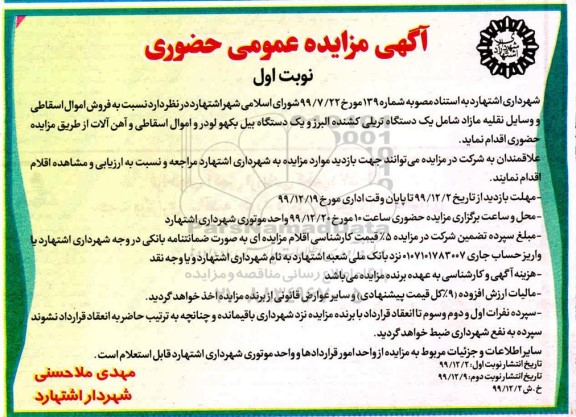 آگهی مزایده عمومی حضوری
نوبت اول
شهرداری اشتهارد به استناد مصوبه شماره ۱۳۹ مورخ ۹۹/۷/۲۲ شورای اسلامی شهر اشتهارد در نظر دارد نسبت به فروش اموال اسقاطی
و وسایل نقلیه مازاد شامل یک دستگاه تریلی کشنده البرز و یک دستگاه بیل بکهو لودر و اموال اسقاطی و آهن آلات از طریق مزایده
حضوری اقدام نماید.
علاقمندان به شرکت در مزایده می‌توانند جهت بازدید موارد مزایده به شهرداری اشتهارد مراجعه و نسبت به ارزیابی و مشاهده اقلام
اقدام نمایند.
-مهلت بازدید از تاریخ ۹۹/۱۲/۲ تا پایان وقت اداری مورخ ۹۹/۱۲/۱۹
-محل و ساعت برگزاری مزایده حضوری ساعت ۱۰ مورخ ۹۹/۱۲/۲۰ واحد موتوری شهرداری اشتهارد
-مبلغ سپرده تضمین شرکت در مزایده ۵٪ قیمت کارشناسی اقلام مزایده ای به صورت ضمانتنامه بانکی در وجه شهرداری اشتهارد یا
واریز حساب جاری ۰۱۰۷۱۰۱۷۸۳۰۰۷ نزد بانک ملی شعبه اشتهارد به نام شهرداری اشتهارد و یا وجه نقد
-هزینه آگهی و کارشناسی به عهده برنده مزایده می باشد
-مالیات ارزش افزوده (۹٪ کل قیمت پیشنهادی) و سایر عوارض قانونی از برنده مزایده اخذ خواهد گردید.
-سپرده نفرات اول و دوم و سوم تا انعقاد قرارداد با برنده مزایده نزد شهرداری باقیمانده و چنانچه به ترتیب حاضر به انعقاد قرارداد نشوند
سپرده به نفع شهرداری ضبط خواهد گردید.
سایر اطلاعات و جزئیات مربوط به مزایده از واحد امور قراردادها و واحد موتوری شهرداری اشتهارد قابل استعلام است.
تاریخ انتشار نوبت اول: ۹۹/۱۲/۲
تاریخ انتشار نوبت دوم: ۹۹/۱۲/۹
خ.ش ۹۹/۱۲/۲
مهدی ملاحسنی
شهردار اشتهارد